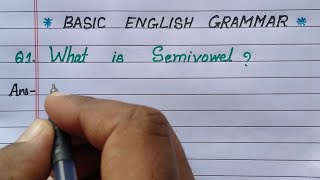 * BASIC ENGLISH GRAMMAR *
Q1. What is Semivowel?
Ans- A